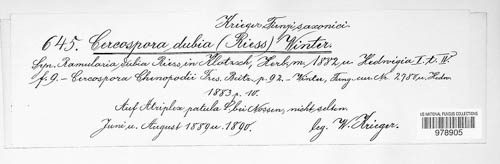 Krieger Fungi saxonici
645. Cercospora dubia (Riess) Winter.
Syn. Ramularia dubia Riess, in Klotzsch, Herb. m. 1882 u. Hedwigia I. t. IV.
f. 9. – Cercospora Chenopodii Fres. Beitr. p. 92. – Winter, Fung. eur. Nr. 2788 u. Hedw.
1883 p. 10.
Auf Atriplex patula L. bei Nossen, nicht selten.
Juni u. August 1889 u. 1890. leg. W. Krieger.
US NATIONAL FUNGUS COLLECTIONS
978905